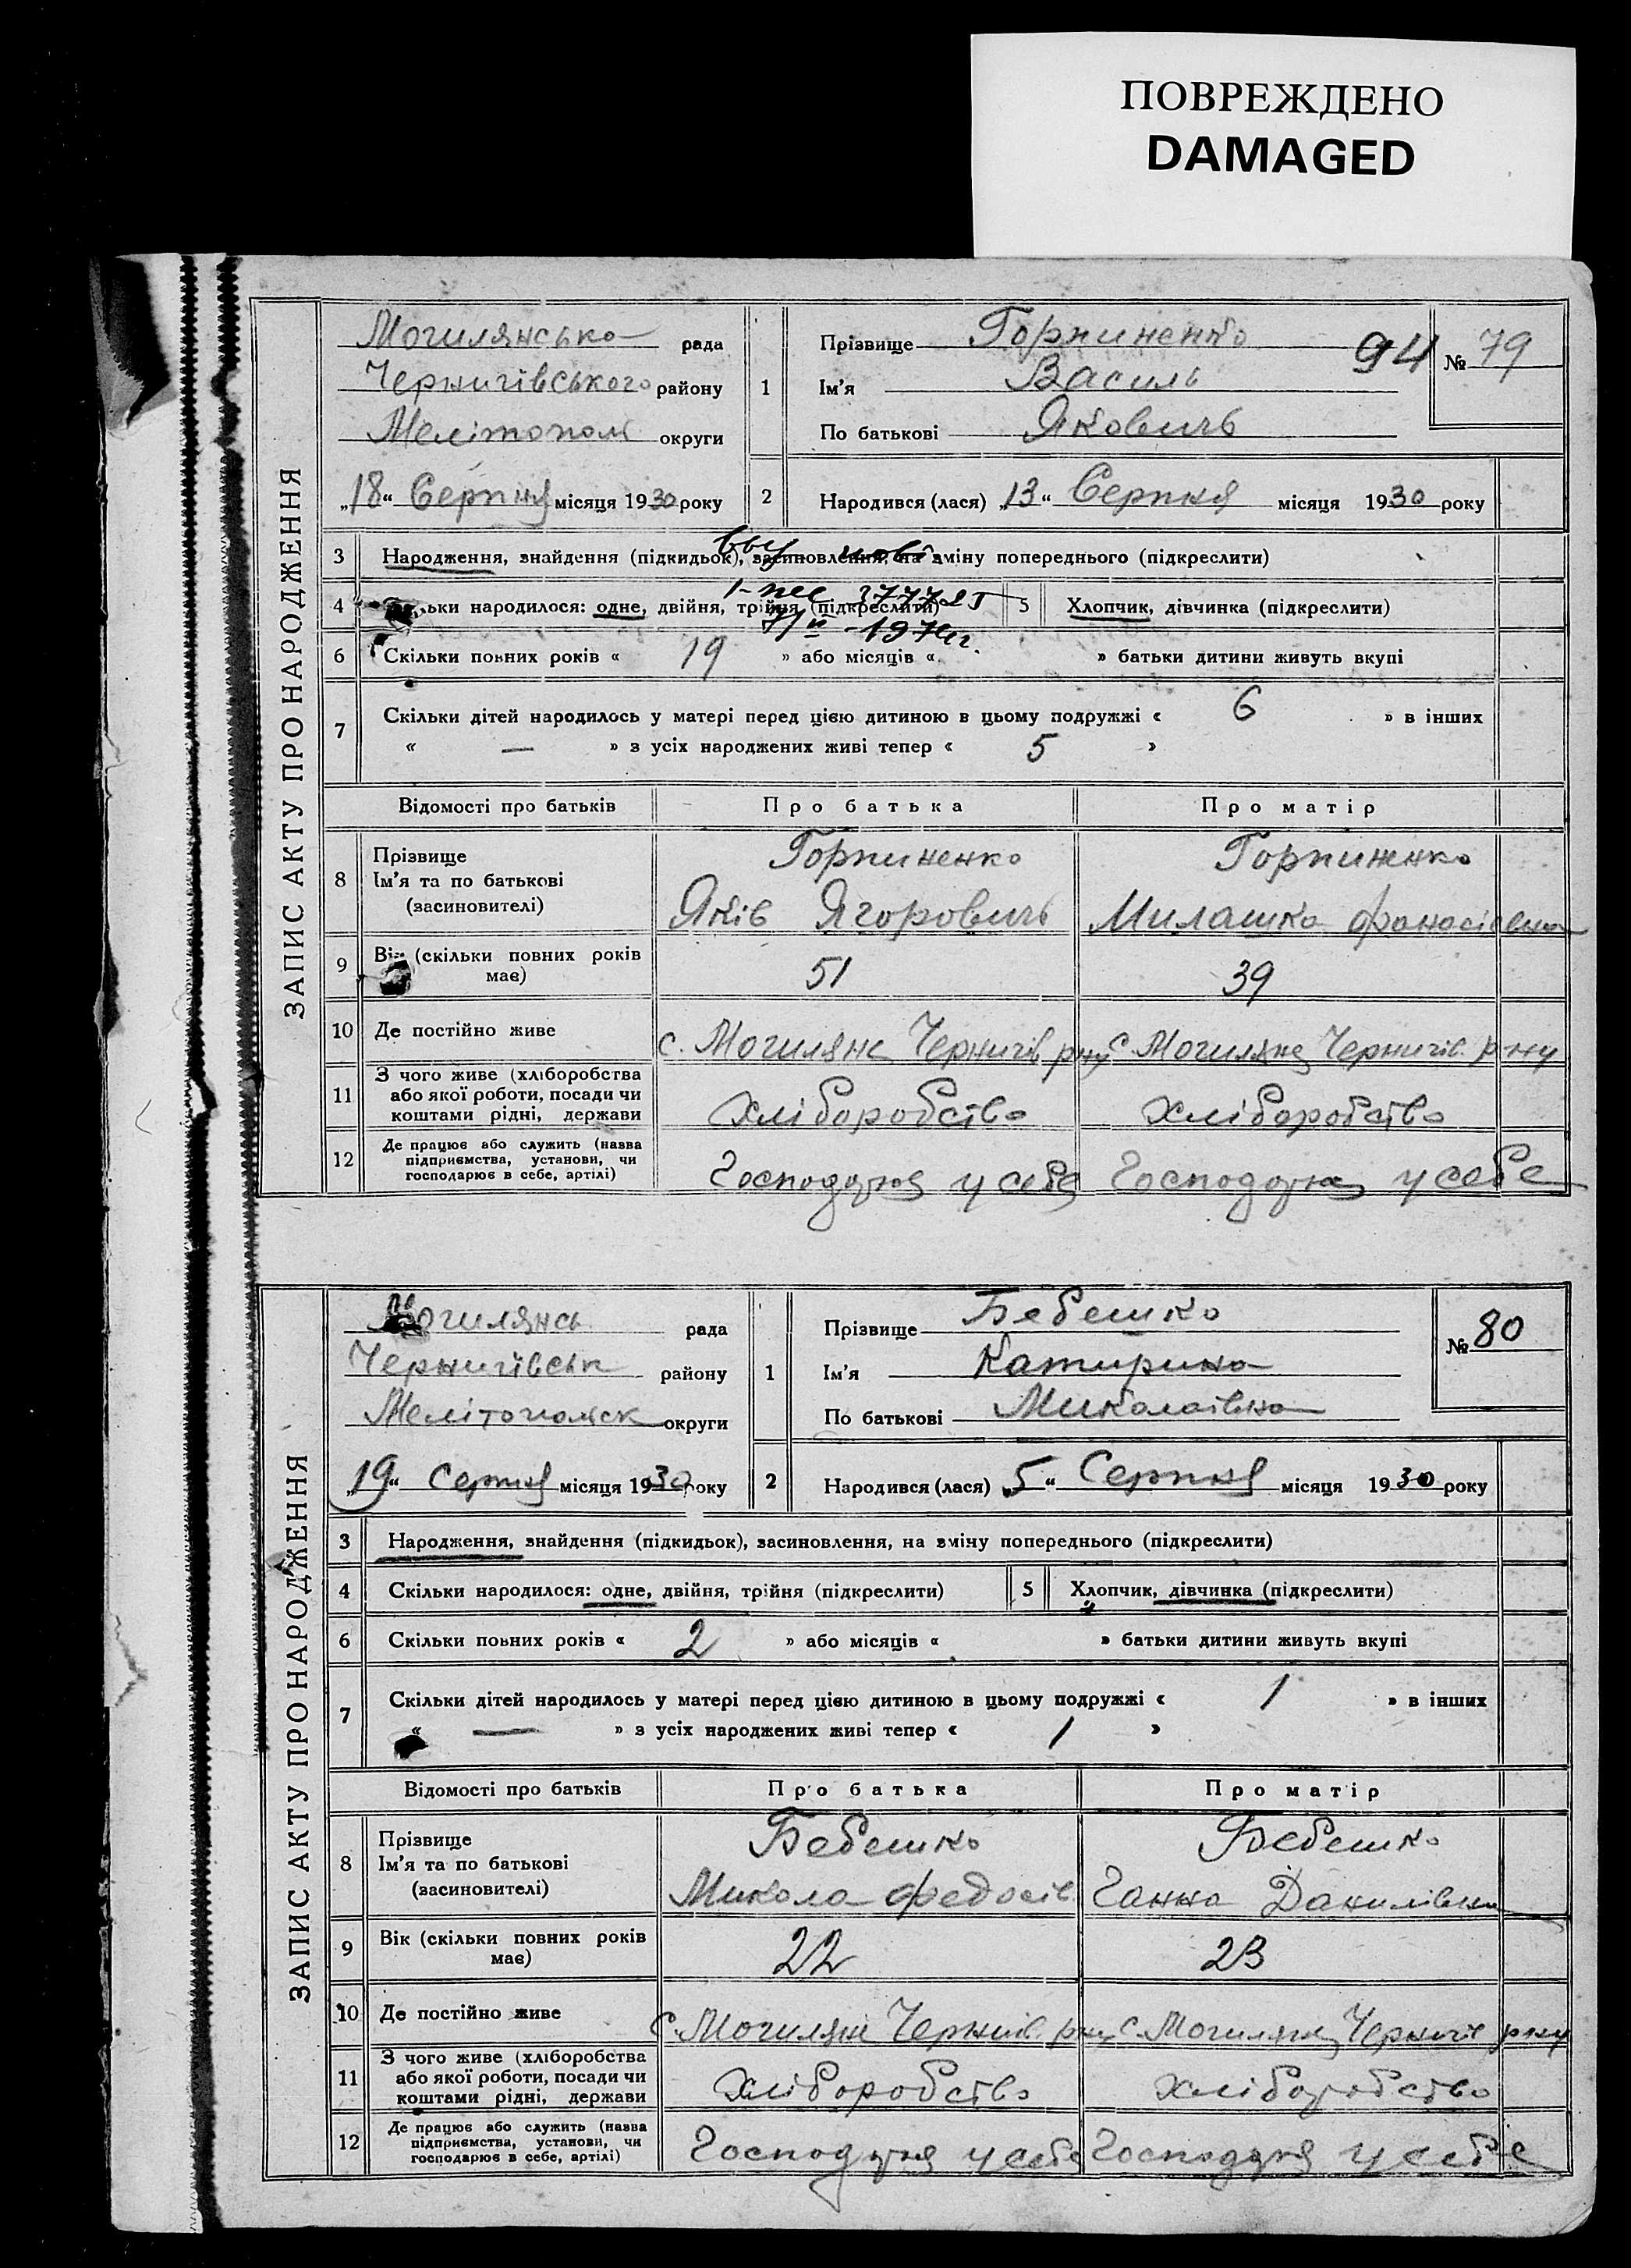 ПОВРЕЖДЕНО
DAMAGED
94
ЗАПИС АКТУ ПРО НАРОДЖЕННЯ
Могилянсько рада
Чернигівського району
Мелітопол округи
„18“ Серпня місяця 1930 року
1
Прізвище Горпиненко
Ім'я Василь
По батькові Яковичь
№ 79
2 Народився (лася) „13“ Серпня місяця 1930 року
3 Народження, знайдення (підкидьок), засиновлення, на зміну попереднього (підкреслити)
4 Скільки народилося: одне, двійня, трійня (підкреслити) 5 Хлопчик, дівчинка (підкреслити)
6 Скільки повних років « 19 » або місяців « » батьки дитини живуть вкупі
7 Скільки дітей народилось у матері перед цією дитиною в цьому подружжі « 6 » в інших
« — » з усіх народжених живі тепер « 5 »
Відомості про батьків Про батька Про матір
8 Прізвище Горпиненко Горпиненко
Ім'я та по батькові
(засиновителі) Яків Ягоровичь Милашка Фанасіевна
9 Вік (скільки повних років має) 51 39
10 Де постійно живе с. Могиляне Чернигів. рну с. Могиляне Чернигів. рну
11 З чого живе (хліборобства
або якої роботи, посади чи
коштами рідні, держави Хліборобство Хліборобство
12 Де працює або служить (назва
підприємства, установи, чи
господарює в себе, артілі) у себе у себе
ЗАПИС АКТУ ПРО НАРОДЖЕННЯ
Могилянсь рада
Чернигівськ району
Мелітопольск округи
„19“ Серпня місяця 1930 року
1
Прізвище Бебешко
Ім'я Катирина
По батькові Миколаівна
№ 80
2 Народився (лася) 5“ Серпня місяця 1930 року
3 Народження, знайдення (підкидьок), засиновлення, на зміну попереднього (підкреслити)
4 Скільки народилося: одне, двійня, трійня (підкреслити) 5 Хлопчик, дівчинка (підкреслити)
6 Скільки повних років « 2 » або місяців « » батьки дитини живуть вкупі
7 Скільки дітей народилось у матері перед цією дитиною в цьому подружжі « 1 » в інших
« — » з усіх народжених живі тепер « 1 »
Відомості про батьків Про батька Про матір
8 Прізвище Бебешко Бебешко
Ім'я та по батькові
(засиновителі) Микола Федосів. Ганна Данилівна
9 Вік (скільки повних років має) 22 23
10 Де постійно живе с. Могиляне Чернигів. рну с. Могиляне Чернигів рну
11 З чого живе (хліборобства
або якої роботи, посади чи
коштами рідні, держави Хліборобство Хліборобство
12 Де працює або служить (назва
підприємства, установи, чи
господарює в себе, артілі) у себе у себе